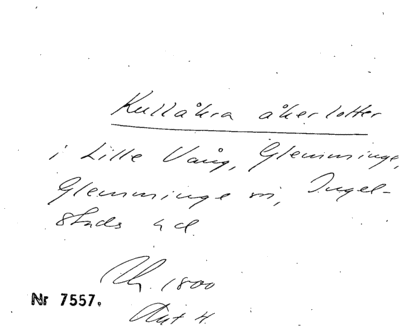 Kullåkra åkerlotter
i Lille Vång, Glemminge,
Glemminge sn, Ingel-
stads hd.
Uh. 1800
Nr 7557.
Ant H.